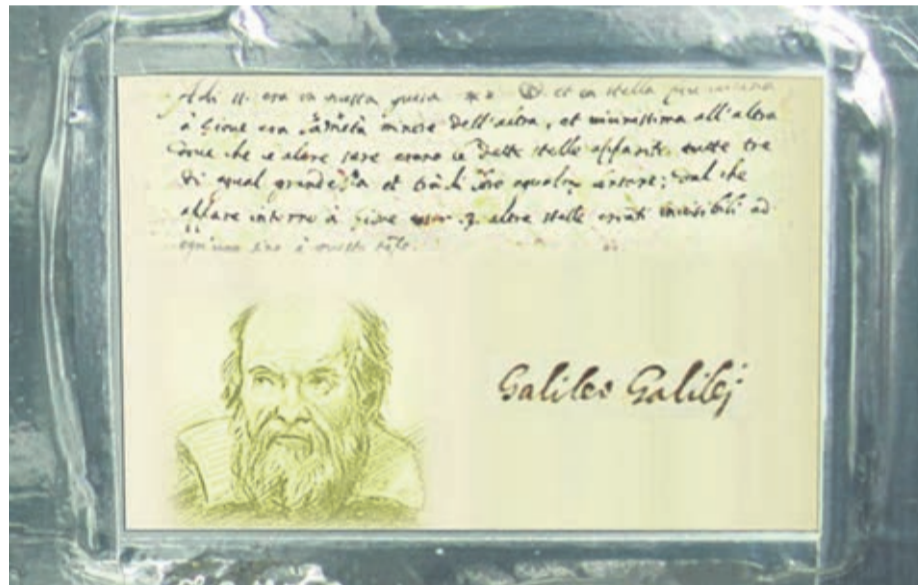 Adi 11. era in questa guisa ** et la stella più vicina
à Giove era la metà minore dell'altra, et vicinissima all'altra
dove che le altre sere erano le dette stelle apparite tutte tre
di egual grandezza et trà di loro egualm. lontane; dal che
appare intorno à Giove esser .3. altre stelle erranti invisibili ad
ogn'uno sino à questo tépo.
Galileo Galilej